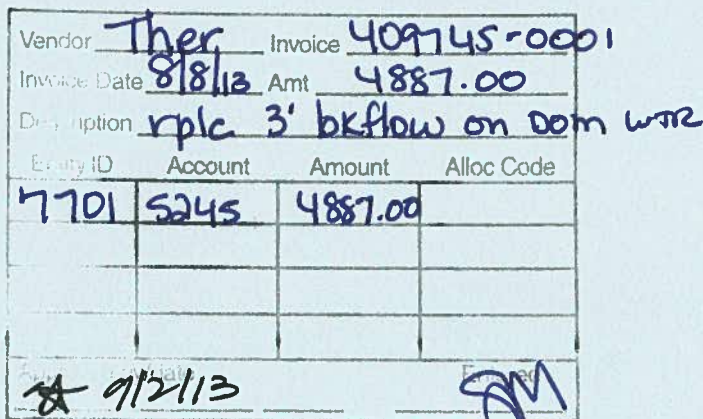 Vendor Ther Invoice 409745-0001
Invoice Date 8/8/13 Amt 4887.00
Description rplc 3' bkflow on Dom WTR
Entity ID Account Amount Alloc Code
7701 5245 4887.00
9/2/13 Entered